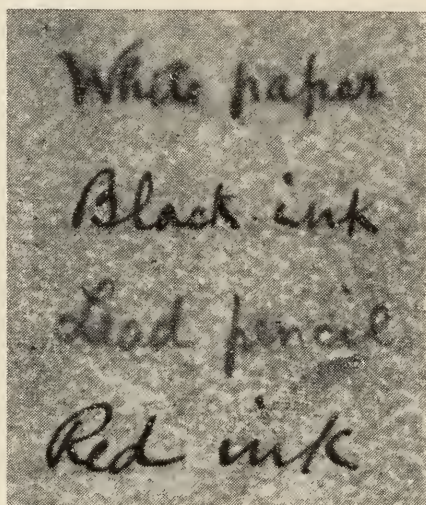 White paper
Black ink
Lead pencil
Red ink